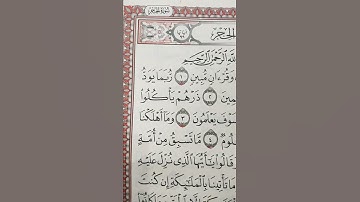 سُورَةُ الحِجْرِ
الحِجْرِ
للَّهِ الرَّحْمَٰنِ الرَّحِيمِ
وَقُرْءَانٍ مُّبِينٍ ١ رُّبَمَا يَوَدُّ
مِينَ ٢ ذَرْهُمْ يَأْكُلُوا
سَوْفَ يَعْلَمُونَ ٣ وَمَا أَهْلَكْنَا
لُومٌ ٤ مَّا تَسْبِقُ مِنْ أُمَّةٍ
قَالُوا يَٰأَيُّهَا الَّذِي نُزِّلَ عَلَيْهِ
مَا تَأْتِينَا بِالْمَلَٰئِكَةِ إِن كُنتَ